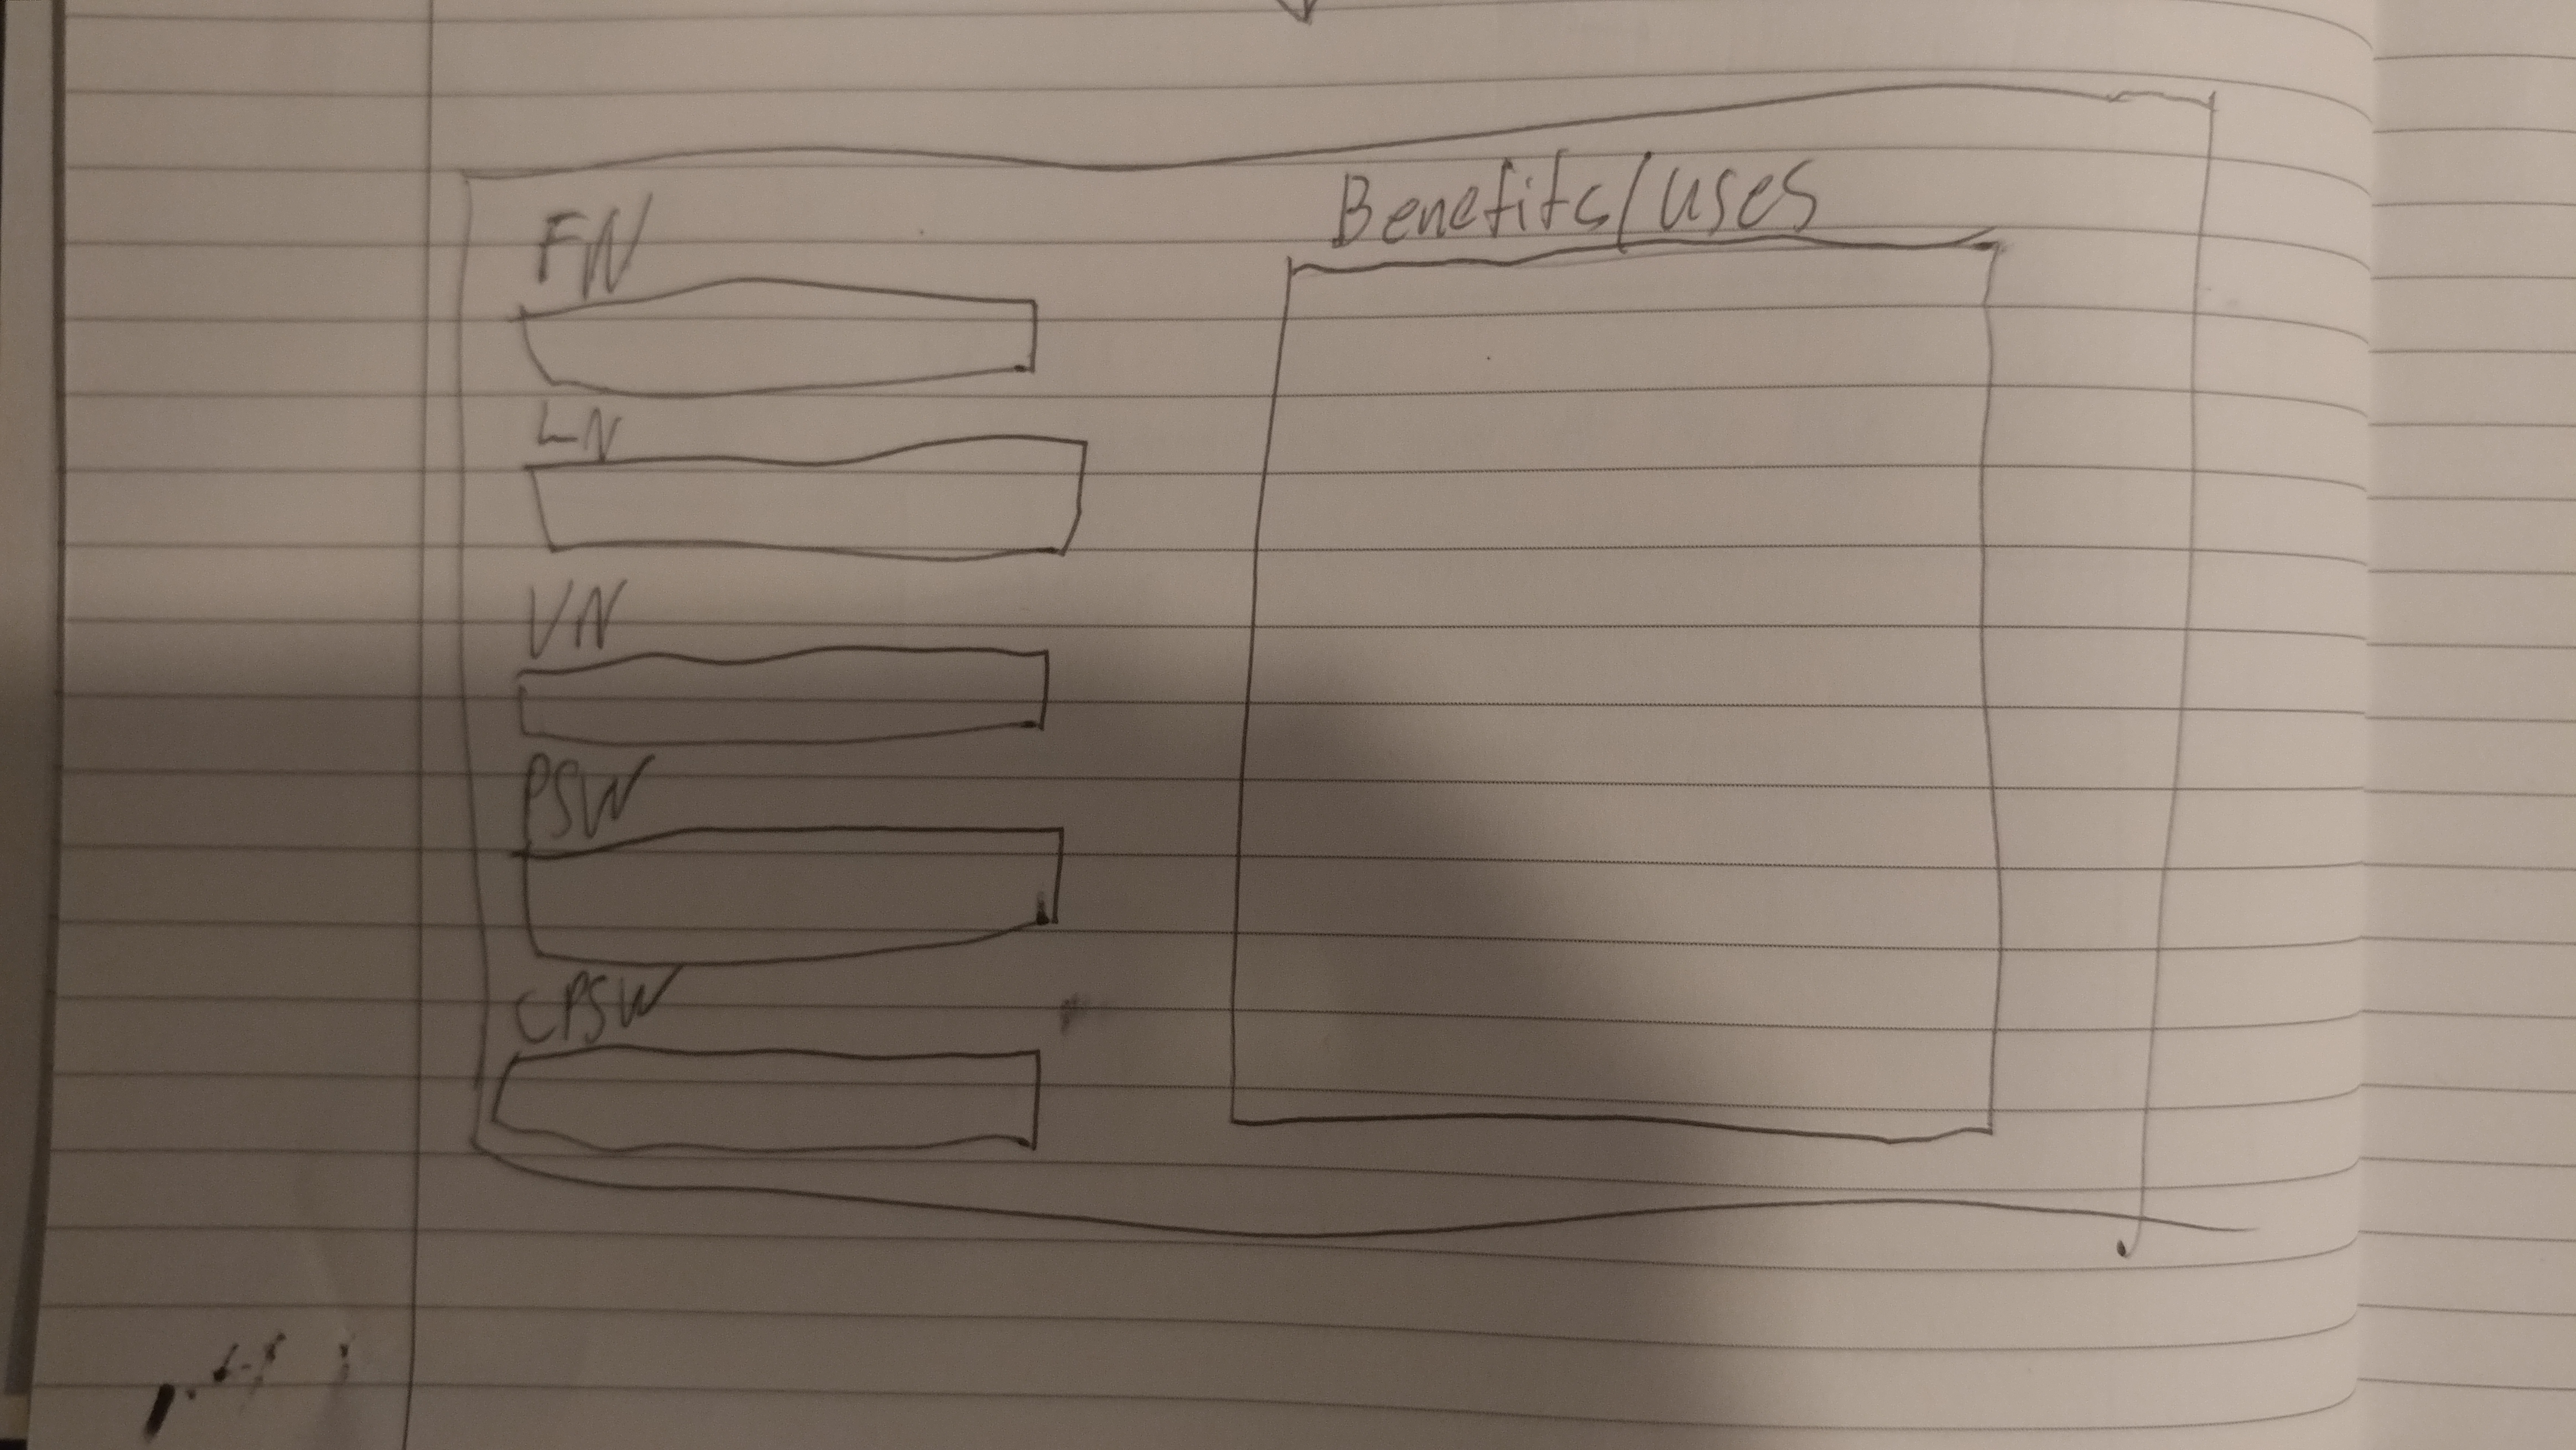 FN
LN
UN
PSW
CPSW
Benefits/uses